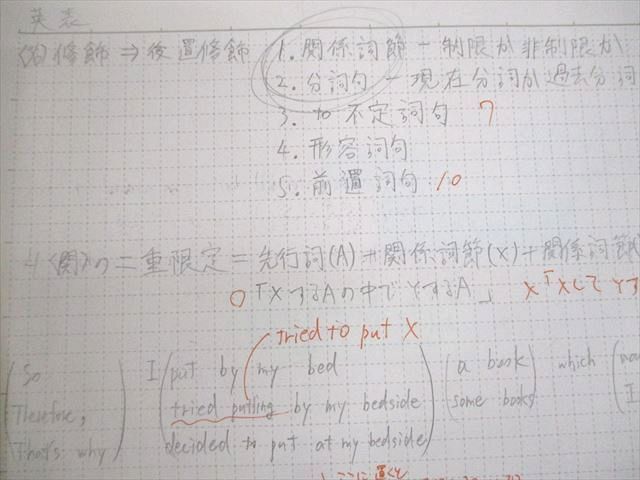 英表
<名>修飾⇒後置修飾 1. 関係詞節 - 制限か非制限か
2. 分詞句 - 現在分詞か過去分詞
3. to 不定詞句 7
4. 形容詞句
5. 前置詞句 10
<関>の二重限定 = 先行詞(A)+関係詞節(X)+関係詞節
○「XするAの中でYするA」 ×「XしてYす
tried to put X
So I put by my bed a book which
Therefore, tried putting by my bedside some books I
That's why decided to put at my bedside
ここに置くと